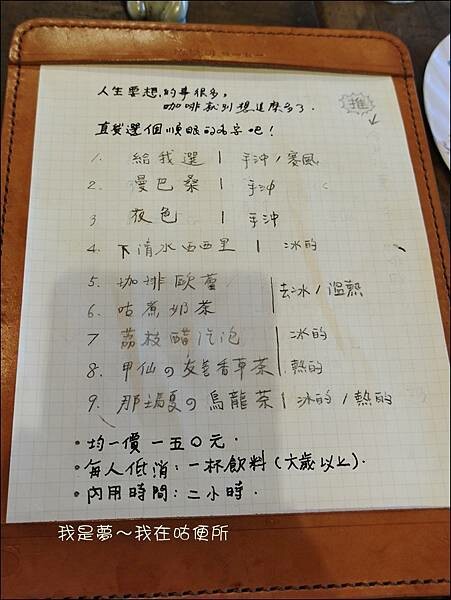 人生要想的事很多,
咖啡就別想這麼多了.
推
直覺選個順眼的名字吧!
1. 給我選 | 手沖/賽風
2. 曼巴桑 | 手沖
3 夜色 | 手沖
4. 下清水西西里 | 冰的
5. 咖啡歐蕾
6. 咕煮奶茶
去冰/溫熱
7 荔枝醋汽泡 冰的
8. 甲仙の友善香草茶 熱的
9. 那瑪夏の烏龍茶 | 冰的/熱的
• 均一價 一五〇元.
• 每人低消:一杯飲料(六歲以上).
• 內用時間:二小時.
我是夢~我在咕便所